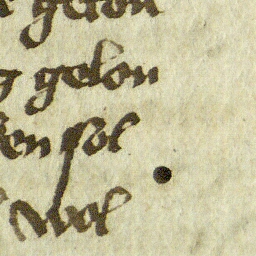 geton
gelon
en sol
wol